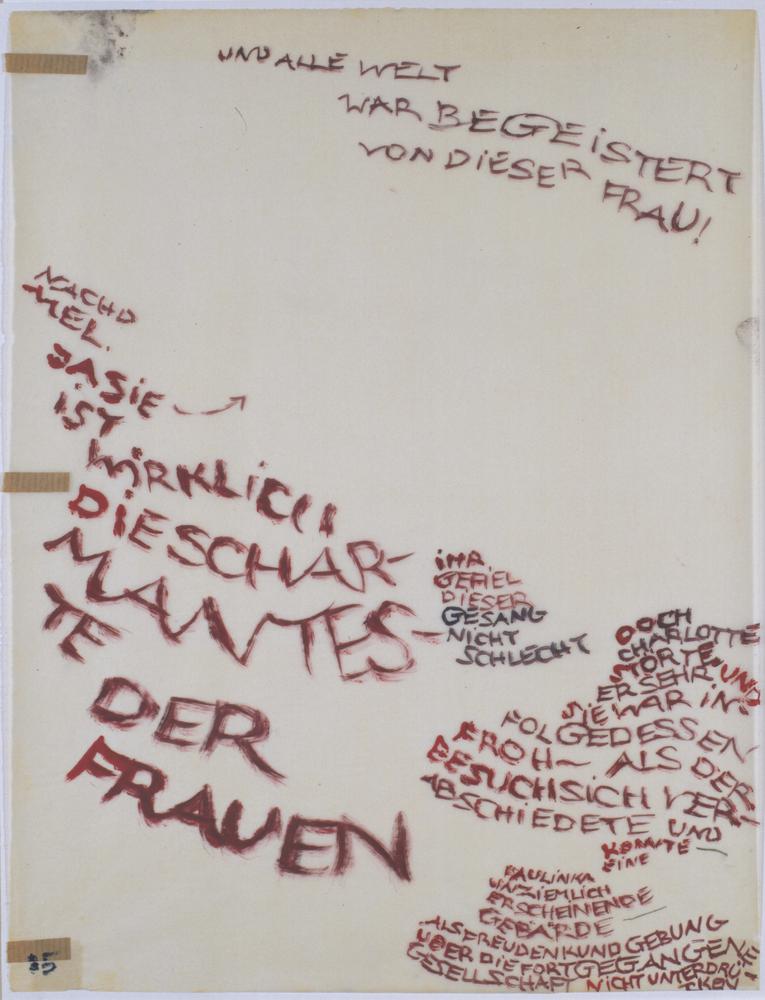 UND ALLE WELT
WAR BEGEiSTERT
VON DiESER FRAU!
NACH D
MEL.
JA SiE
IST
WiRKLiCH
DiE SCHAR-
MANTES-
TE
DER
FRAUEN
iHR
GEFiEL
DiESER
GESANG
NiCHT
SCHLECHT
DOCH
CHARLOTTE
STÖRTE
ER SEHR UND
SiE WAR iN-
FOLGEDESSEN
FROH – ALS DER
BESUCH SiCH VER-
ABSCHiEDETE UND
KONNTE –
EiNE
PAULiNKA
UNZiEMLiCH
ERSCHEiNENDE
GEBÄRDE
ALS FREUDENKUNDGEBUNG
ÜBER DiE FORTGEGANGENE
GESELLSCHAFT NiCHT UNTERDRÜ-